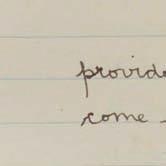 provide
come